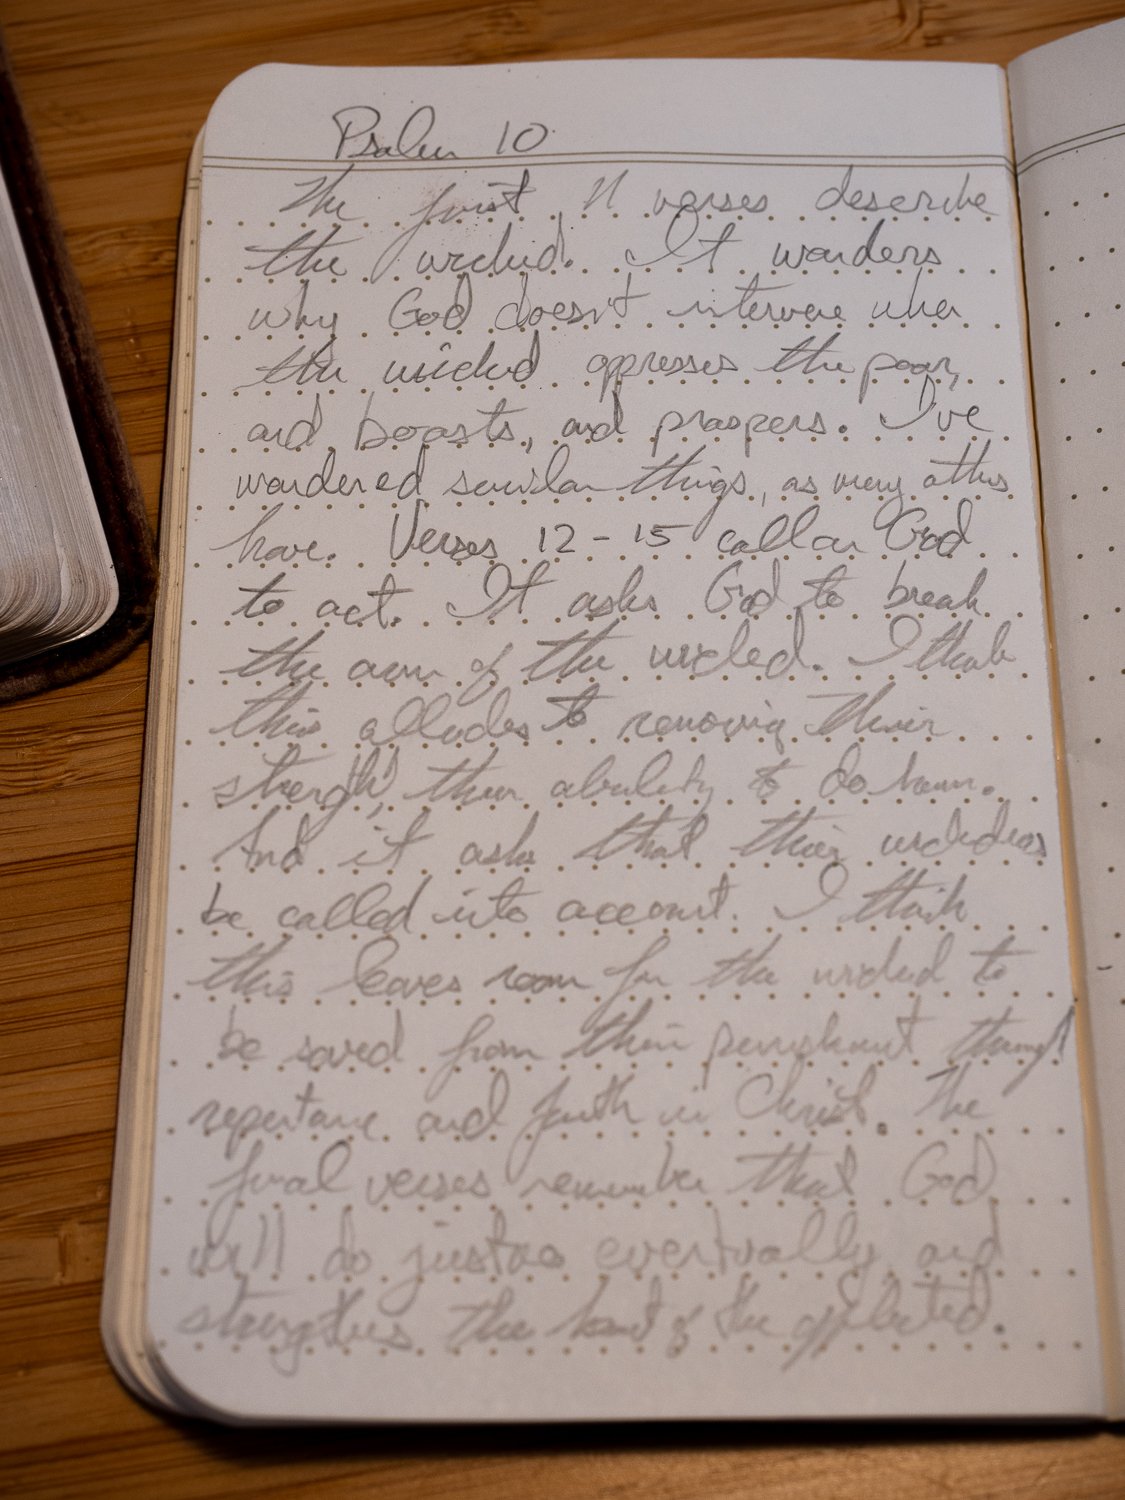 Psalm 10
The first 11 verses describe
the wicked. It wonders
why God doesn't intervene when
the wicked oppresses the poor,
and boasts, and prospers. I've
wondered similar things, as many others
have. Verses 12-15 call on God
to act. It asks God to break
the arm of the wicked. I think
this alludes to removing their
strength, their ability to do harm.
And it asks that their wickedness
be called into account. I think
this leaves room for the wicked to
be saved from their punishment through
repentance and faith in Christ. The
final verses remember that God
will do justice eventually and
strengthens the heart of the afflicted.